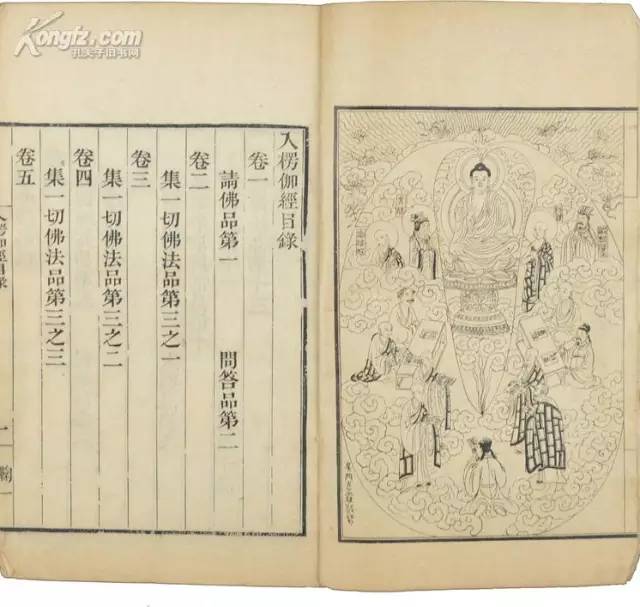 Kongfz.com
孔夫子旧书网
入楞伽經目錄
卷一
請佛品第一 問答品第二
卷二
集一切佛法品第三之一
卷三
集一切佛法品第三之二
卷四
集一切佛法品第三之三
卷五
入楞伽經目錄
一